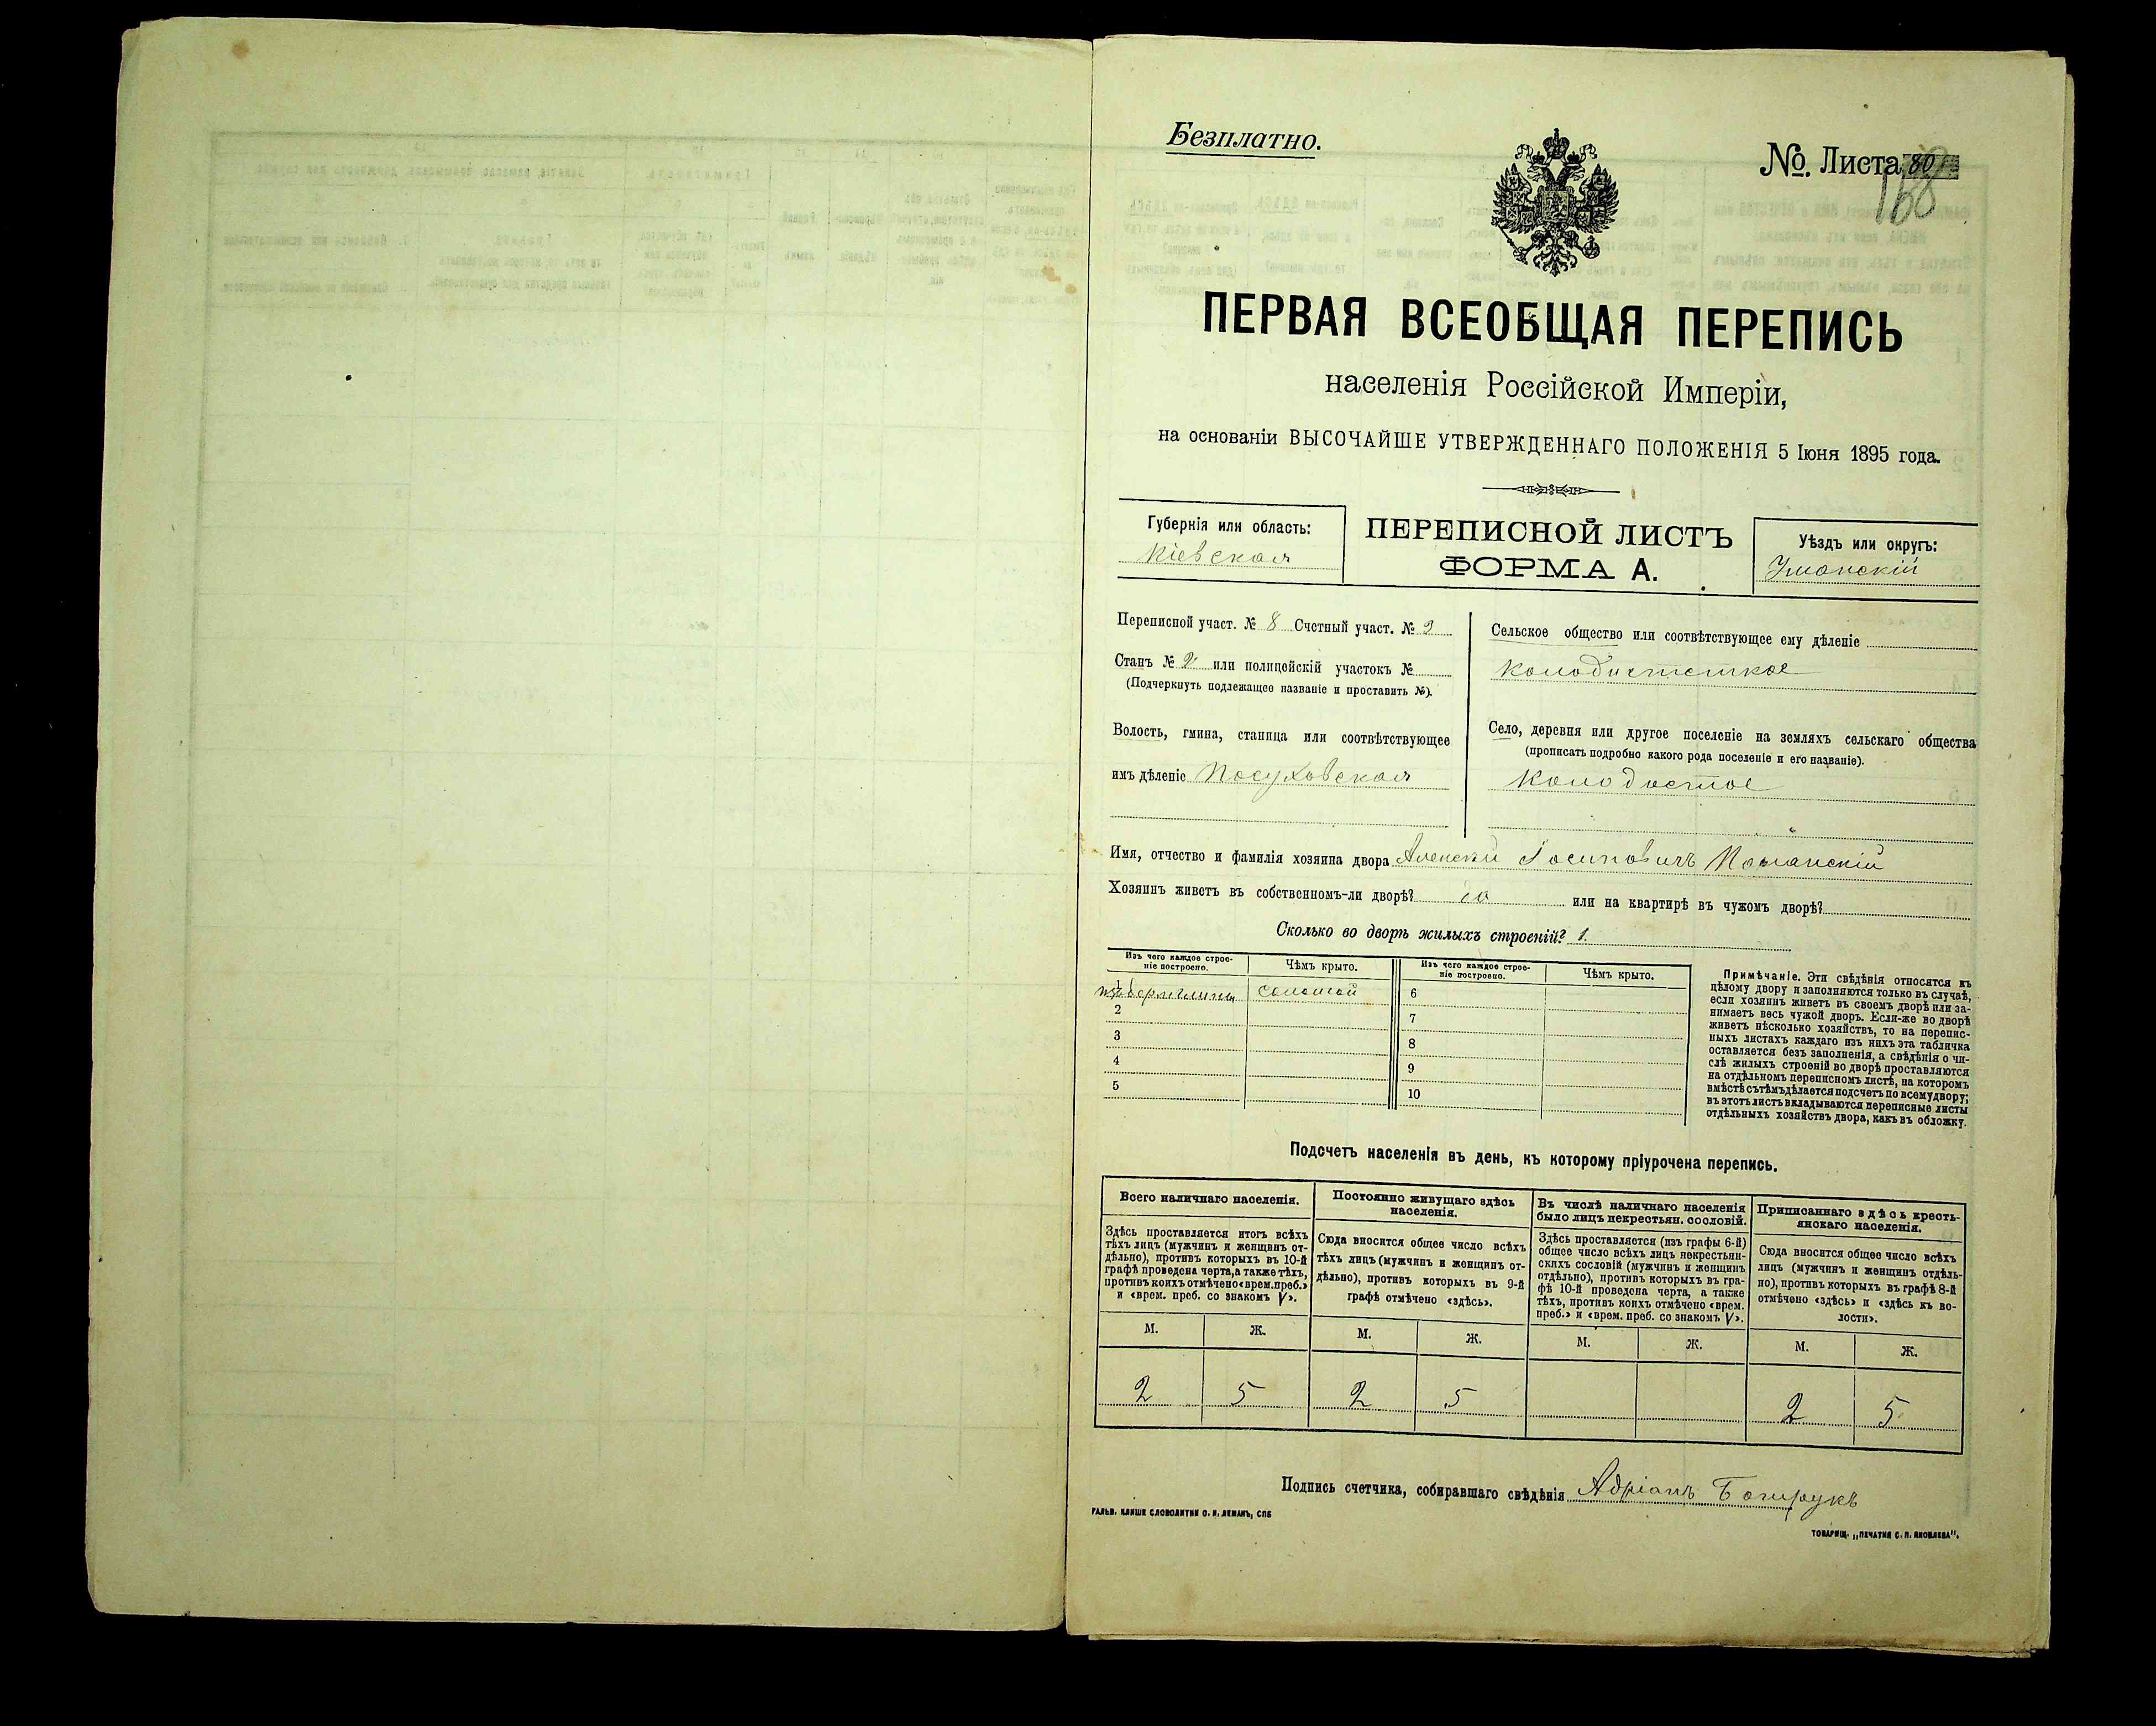 Безплатно.
№ Листа 80
168
ПЕРВАЯ ВСЕОБЩАЯ ПЕРЕПИСЬ
населенія Россійской Имперіи,
на основаніи ВЫСОЧАЙШЕ УТВЕРЖДЕННАГО ПОЛОЖЕНІЯ 5 Іюня 1895 года.
Губернія или область:
Кіевская
ПЕРЕПИСНОЙ ЛИСТЪ
ФОРМА А.
Уѣздъ или округъ:
Уманскій
Переписной участ. № 8 Счетный участ. № 9
Станъ № 2 или полицейскій участокъ №
(Подчеркнуть подлежащее названіе и проставить №).
Волость, гмина, станица или соотвѣтствующее
имъ дѣленіе Посуховская
Сельское общество или соотвѣтствующее ему дѣленіе
Колодистское
Село, деревня или другое поселеніе на земляхъ сельскаго общества
(прописать подробно какого рода поселеніе и его названіе).
Колодистое
Имя, отчество и фамилія хозяина двора Алексѣй Іосиповичъ
Хозяинъ живетъ въ собственномъ-ли дворѣ? да или на квартирѣ въ чужомъ дворѣ?
Сколько во дворѣ жилыхъ строеній? 1.
Изъ чего каждое строе-
ніе построено.
Чѣмъ крыто.
Изъ чего каждое строе-
ніе построено.
Чѣмъ крыто.
1 соломой
2
3
4
5
6
7
8
9
10
Примѣчаніе. Эти свѣдѣнія относятся къ
цѣлому двору и заполняются только въ случаѣ,
если хозяинъ живетъ въ своемъ дворѣ или за-
нимаетъ весь чужой дворъ. Если-же во дворѣ
живетъ нѣсколько хозяйствъ, то на перепис-
ныхъ листахъ каждаго изъ нихъ эта табличка
оставляется безъ заполненія, а свѣдѣнія о чи-
слѣ жилыхъ строеній во дворѣ проставляются
на отдѣльномъ переписномъ листѣ, на которомъ
вмѣстѣ съ тѣмъ дѣлается подсчетъ по всему двору;
въ этотъ листъ вкладываются переписные листы
отдѣльныхъ хозяйствъ двора, какъ въ обложку.
Подсчетъ населенія въ день, къ которому пріурочена перепись.
Всего наличнаго населенія.
Здѣсь проставляется итогъ всѣхъ
тѣхъ лицъ (мужчинъ и женщинъ от-
дѣльно), противъ которыхъ въ 10-й
графѣ проведена черта, а также тѣхъ,
противъ коихъ отмѣчено «врем. преб.»
и «врем. преб. со знакомъ V».
Постоянно живущаго здѣсь
населенія.
Сюда вносится общее число всѣхъ
тѣхъ лицъ (мужчинъ и женщинъ от-
дѣльно), противъ которыхъ въ 9-й
графѣ отмѣчено «здѣсь».
Въ числѣ наличнаго населенія
было лицъ некрестьян. сословій.
Здѣсь проставляется (изъ графы 6-й)
общее число всѣхъ лицъ некрестьян-
скихъ сословій (мужчинъ и женщинъ
отдѣльно), противъ которыхъ въ гра-
фѣ 10-й проведена черта, а также
тѣхъ, противъ коихъ отмѣчено «врем.
преб.» и «врем. преб. со знакомъ V».
Приписаннаго здѣсь кресть-
янскаго населенія.
Сюда вносится общее число всѣхъ
лицъ (мужчинъ и женщинъ отдѣль-
но), противъ которыхъ въ графѣ 8-й
отмѣчено «здѣсь» и «здѣсь къ во-
лости».
М. Ж. М. Ж. М. Ж. М. Ж.
2 5 2 5 2 5
Подпись счетчика, собиравшаго свѣдѣнія Адріанъ
ГАЛЬВ. КЛИШЕ СЛОВОЛИТНИ О. И. ЛЕМАНЪ, СПБ
ТОВАРИЩ. „ПЕЧАТНЯ С. П. ЯКОВЛЕВА".